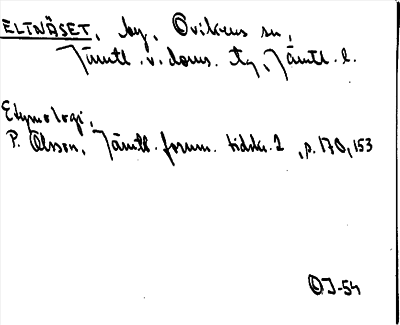 ELTNÄSET, by, Ovikens sn,
Jämtl. v. doms. tg, Jämtl. l.
Etymologi,
P. Olsson, Jämtl. fornm. tidskr. 2, p. 170, 153
OJ-54